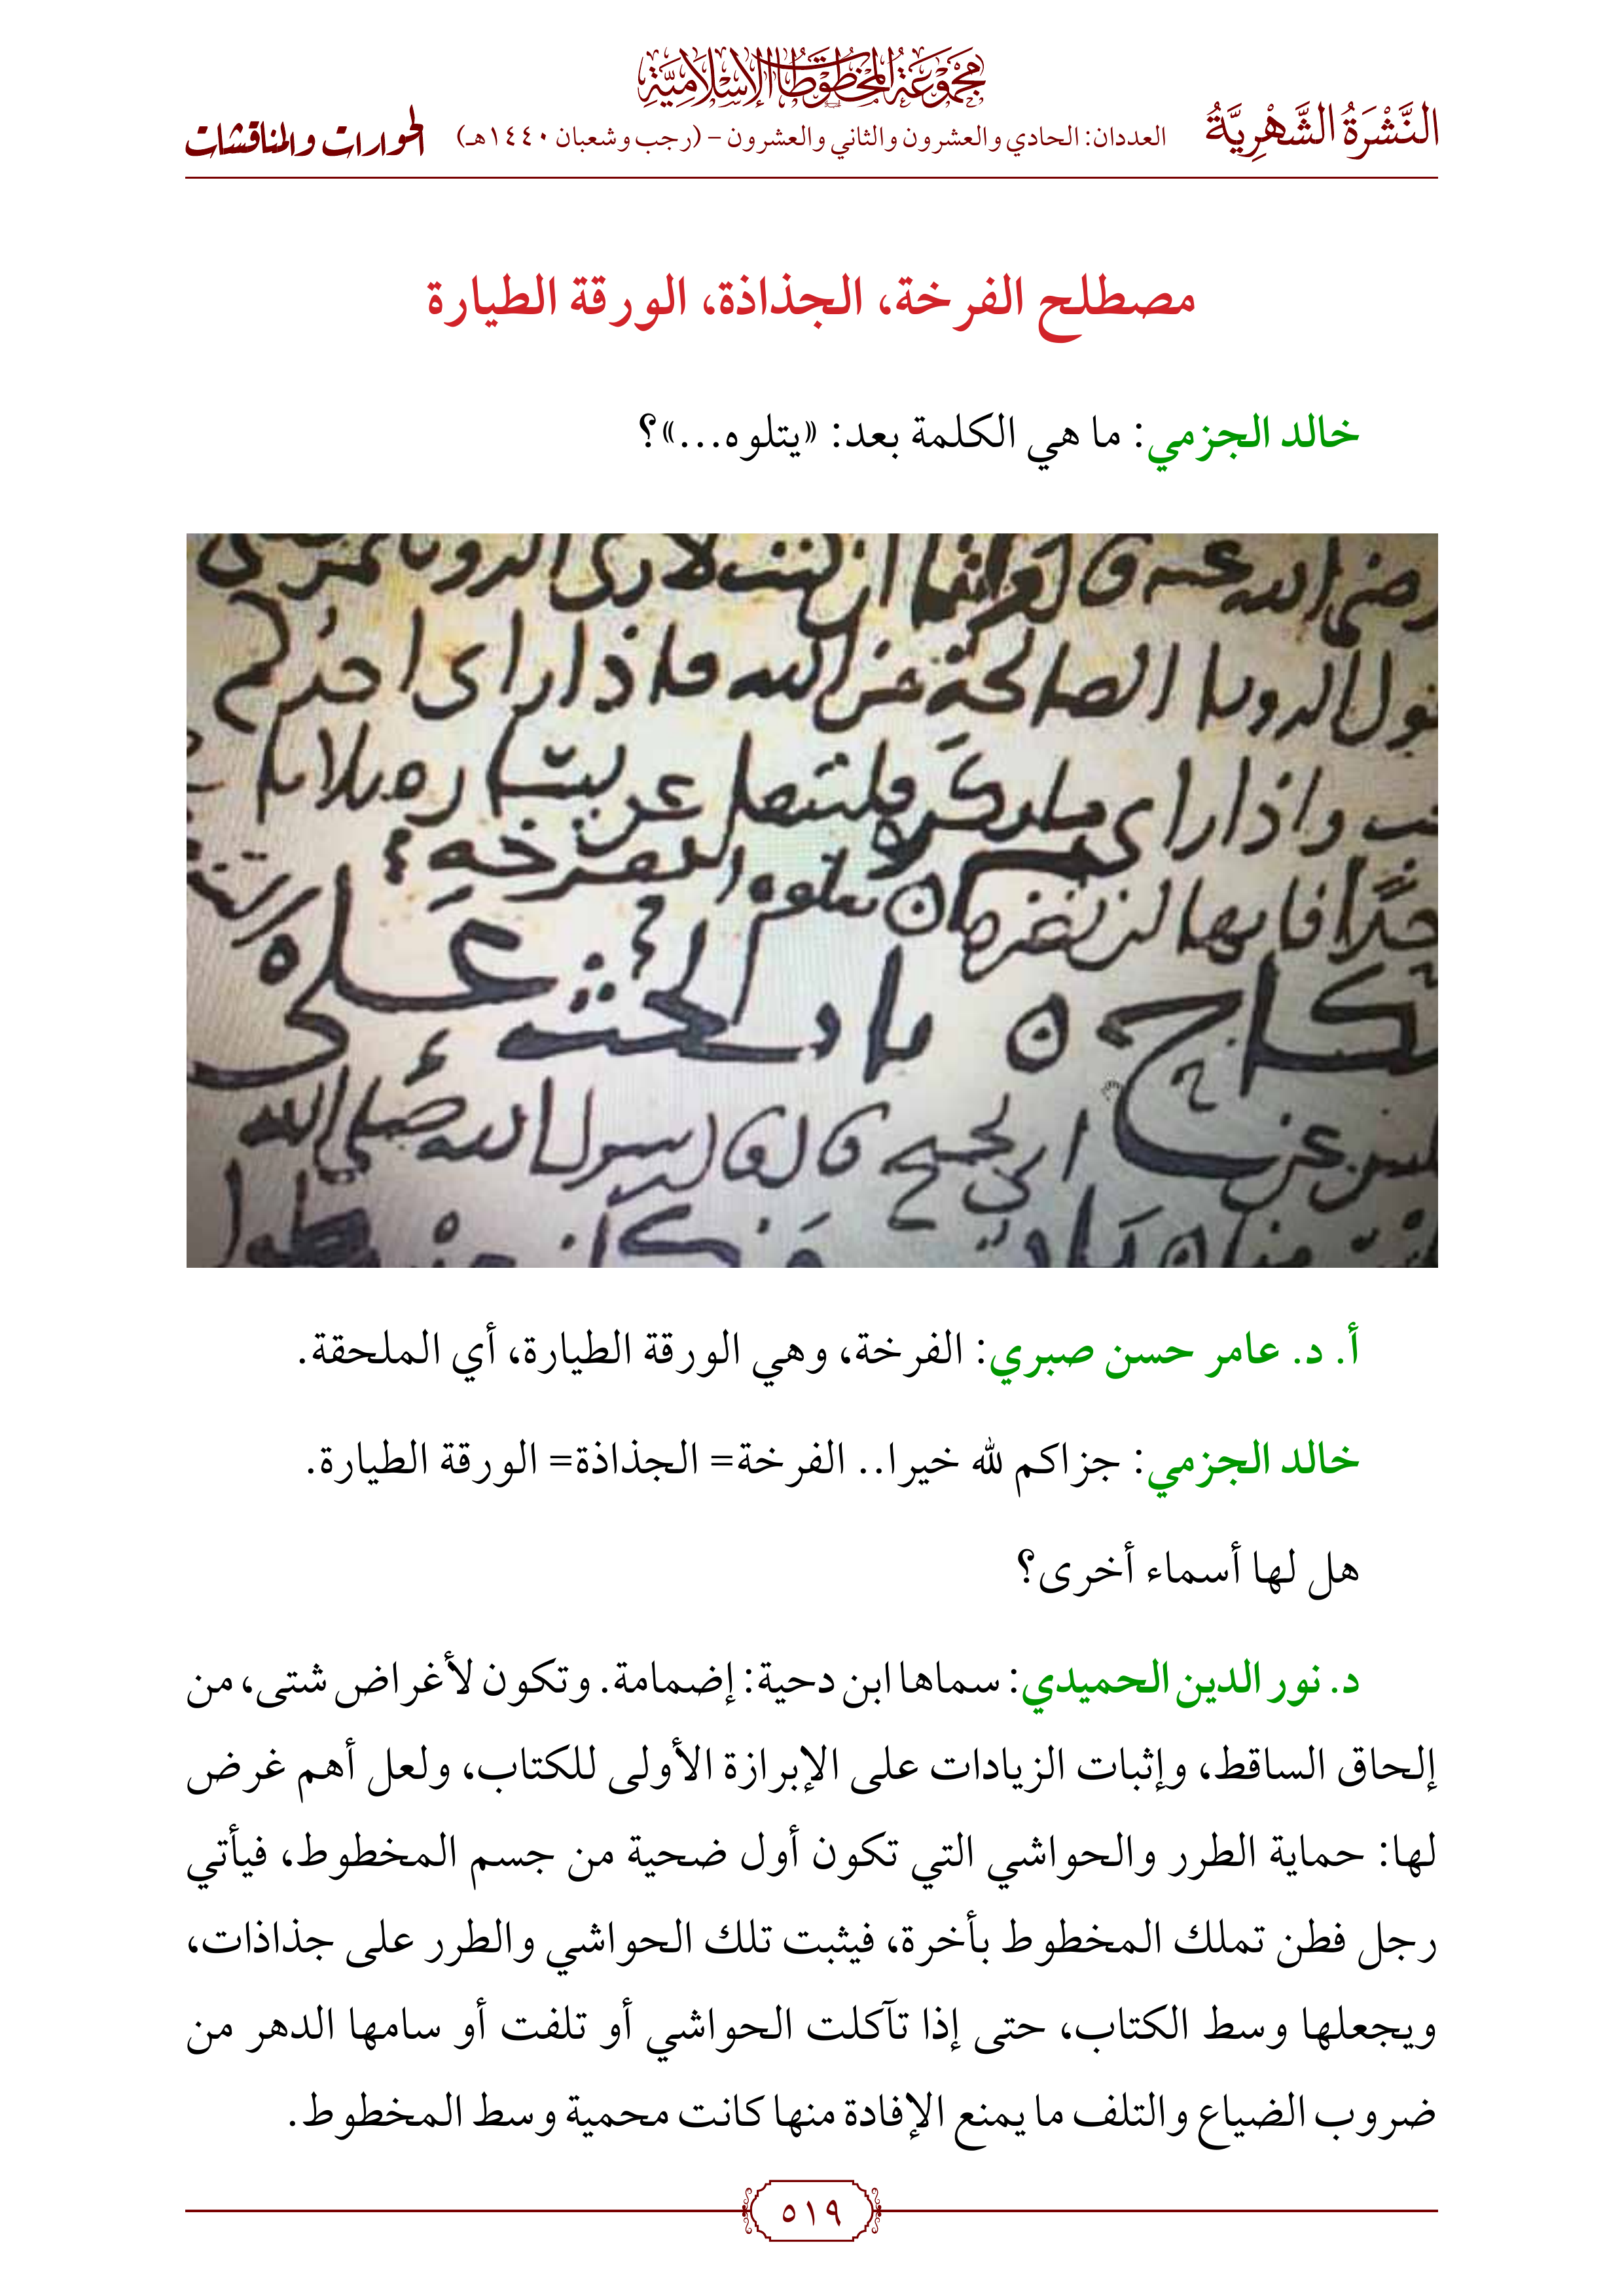 مجموعة المخطوطات الإسلامية
النَّشْرَةُ الشَّهْرِيَّةُ
العددان: الحادي والعشرون والثاني والعشرون – (رجب وشعبان ١٤٤٠هـ)
الحوارات والمناقشات
مصطلح الفرخة، الجذاذة، الورقة الطيارة
خالد الجزمي: ما هي الكلمة بعد: «يتلوه...»؟
رضي الله عنه قال ان كنت لارى الرويا
الرويا الصالحة من الله فاذا راى احدكم
واذا راى ما يكره فليتفل عن يساره ثلاثا
فانها لن تضره ٥ يتلوه الفرخه
٥ باب الحث على
قال قال رسول الله صلى الله
أ. د. عامر حسن صبري: الفرخة، وهي الورقة الطيارة، أي الملحقة.
خالد الجزمي: جزاكم لله خيرا.. الفرخة= الجذاذة= الورقة الطيارة.
هل لها أسماء أخرى؟
د. نور الدين الحميدي: سماها ابن دحية: إضمامة. وتكون لأغراض شتى، من
إلحاق الساقط، وإثبات الزيادات على الإبرازة الأولى للكتاب، ولعل أهم غرض
لها: حماية الطرر والحواشي التي تكون أول ضحية من جسم المخطوط، فيأتي
رجل فطن تملك المخطوط بأخرة، فيثبت تلك الحواشي والطرر على جذاذات،
ويجعلها وسط الكتاب، حتى إذا تآكلت الحواشي أو تلفت أو سامها الدهر من
ضروب الضياع والتلف ما يمنع الإفادة منها كانت محمية وسط المخطوط.
٥١٩